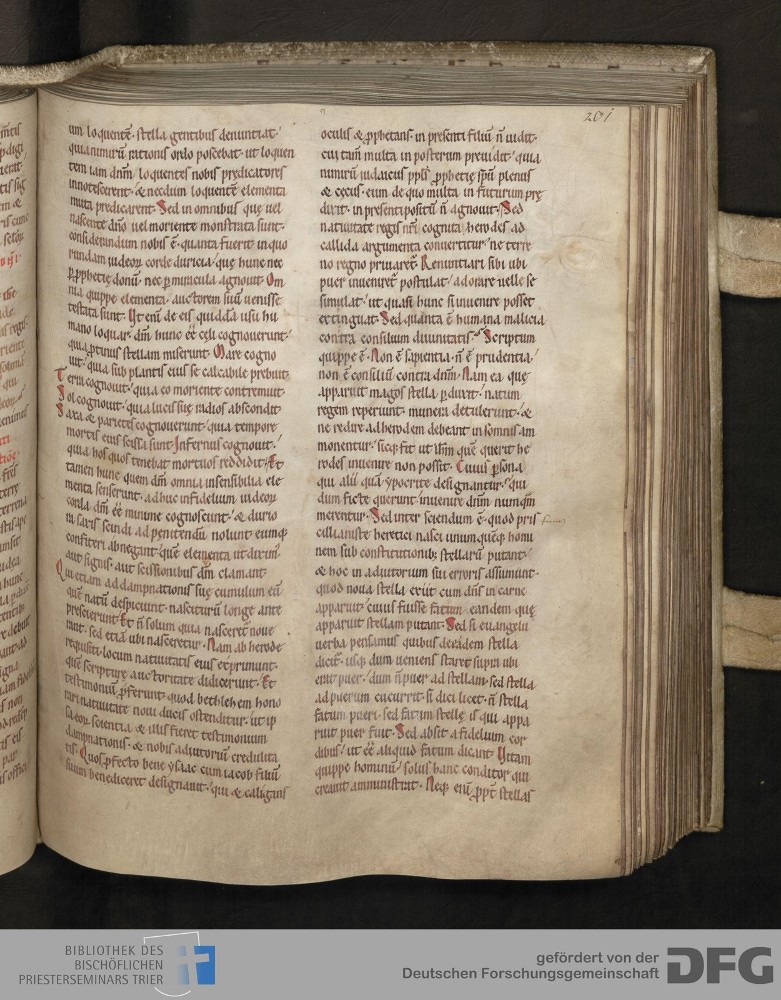 201
um loquentē. stella gentibus denuntiat.
quia nimirū rationis ordo poscebat. ut loquen
tem iam dn̄m loquentes nobis predicatores
innotescerent. & necdum loquentē elementa
muta predicarent. Sed in omnibus quę uel
nascente dn̄o uel moriente monstrata sunt.
considerandum nobis ē. quanta fuerit in quo
rundam iudeoꝝ corde duricia. quę hunc nec
ꝑ ꝓphetię donū. nec ꝑ miracula agnouit. Om
nia quippe elementa. auctorem suū uenisse
testata sunt. Ut eni͂ de eis quiddā usu hu
mano loquar. dm̄ hunc ee͂ cęli cognouerunt.
quia ꝓtinus stellam miserunt. Mare cogno
uit. quia sub plantis eius se calcabile prebuit.
Terra cognouit. quia eo moriente contremuit.
Sol cognouit. quia lucis suę radios abscondit.
Saxa & parietes cognouerunt. quia tempore
mortis eius scissa sunt. Infernus cognouit.
quia hos quos tenebat mortuos reddidit. Et
tamen hunc quem dm̄ omnia insensibilia ele
menta senserunt. adhuc infidelium iudeoꝝ
corda dm̄ ee͂ minime cognoscunt. & durio
ra saxis scindi ad penitendū nolunt. eumqꝫ
confiteri abnegant. quē elementa ut diximꝰ
aut signis. aut scissionibus dm̄ clamant.
Qui etiam ad dampnationis suę cumulum eū
quē natū despiciunt. nasciturū longe ante
prescierunt. Et n̄ solum quia nasceret̄ noue
runt. sed etiā ubi nasceretur. Nam ab herode
requisiti. locum natiuitatis eius exprimunt.
quē scripturę auctoritate didicerunt. Et
testimoniū ꝓferunt. quod bethlehem hono
rari natiuitate noui ducis ostenditur. ut ip
sa eoꝝ scientia & illis fieret testimonium
dampnationis. & nobis adiutoriū credulita
tis. Quos ꝓfecto bene ysaac cum iacob filiū
suum benediceret designauit. qui & caligans
oculis & ꝓphetans. in presenti filiū n̄ uidit.
cui tam̄ multa in posterum preuidit. quia
nimirū iudaicus ppl͂s ꝓphetię sp̄u plenus
& cęcus. eum de quo multa in futurum prę
dixit. in presenti positū n̄ agnouit. Sed
natiuitate regis nr̄i cognita. herodes ad
callida argumenta conuertitur. ne terre
no regno priuaret̄. Renuntiari sibi ubi
puer inueniret̄ postulat. adorare uelle se
simulat. ut quasi hunc si inuenire posset
extinguat. Sed quanta ē humana malicia
contra consilium diuinitatis. Scriptum
quippe ē. Non ē sapientia. n̄ ē prudentia.
non ē consiliū contra dn̄m. Nam ea quę
apparuit magos stella ꝑduxit. natum
regem reperiunt. munera detulerunt. &
ne redire ad herodem debeant in somnis am
monentur. sicqꝫ fit ut ihm̄ quē querit he
rodes inuenire non possit. Cuius ꝑsona
qui alii quā ypocritę designantur. qui
dum ficte querunt. inuenire dn̄m numqm̄
merentur. Sed inter sciendum ē. quod pris
cillianistę heretici nasci unumquēqꝫ homi
nem sub constitutionibꝫ stellarū putant.
& hoc in adiutorium sui erroris assumunt.
quod noua stella exiit cum dn̄s in carne
apparuit. cuius fuisse fatum eandem quę
apparuit stellam putant. Sed si euangelii
uerba pensamus quibus de eadem stella
dicit̄. usqꝫ dum ueniens staret supra ubi
erat puer. dum n̄ puer ad stellam. sed stella
ad puerum cucurrit. si dici licet. n̄ stella
fatum pueri. sed fatum stellę is qui appa
ruit puer fuit. Sed absit a fidelium cor
dibus. ut ee͂ aliquid fatum dicant. Uitam
quippe hominū. solus hanc conditor qui
creauit amministrat. Neqꝫ eni͂ ꝓpt̄ stellas
BIBLIOTHEK DES
BISCHÖFLICHEN
PRIESTERSEMINARS TRIER
gefördert von der
Deutschen Forschungsgemeinschaft
DFG